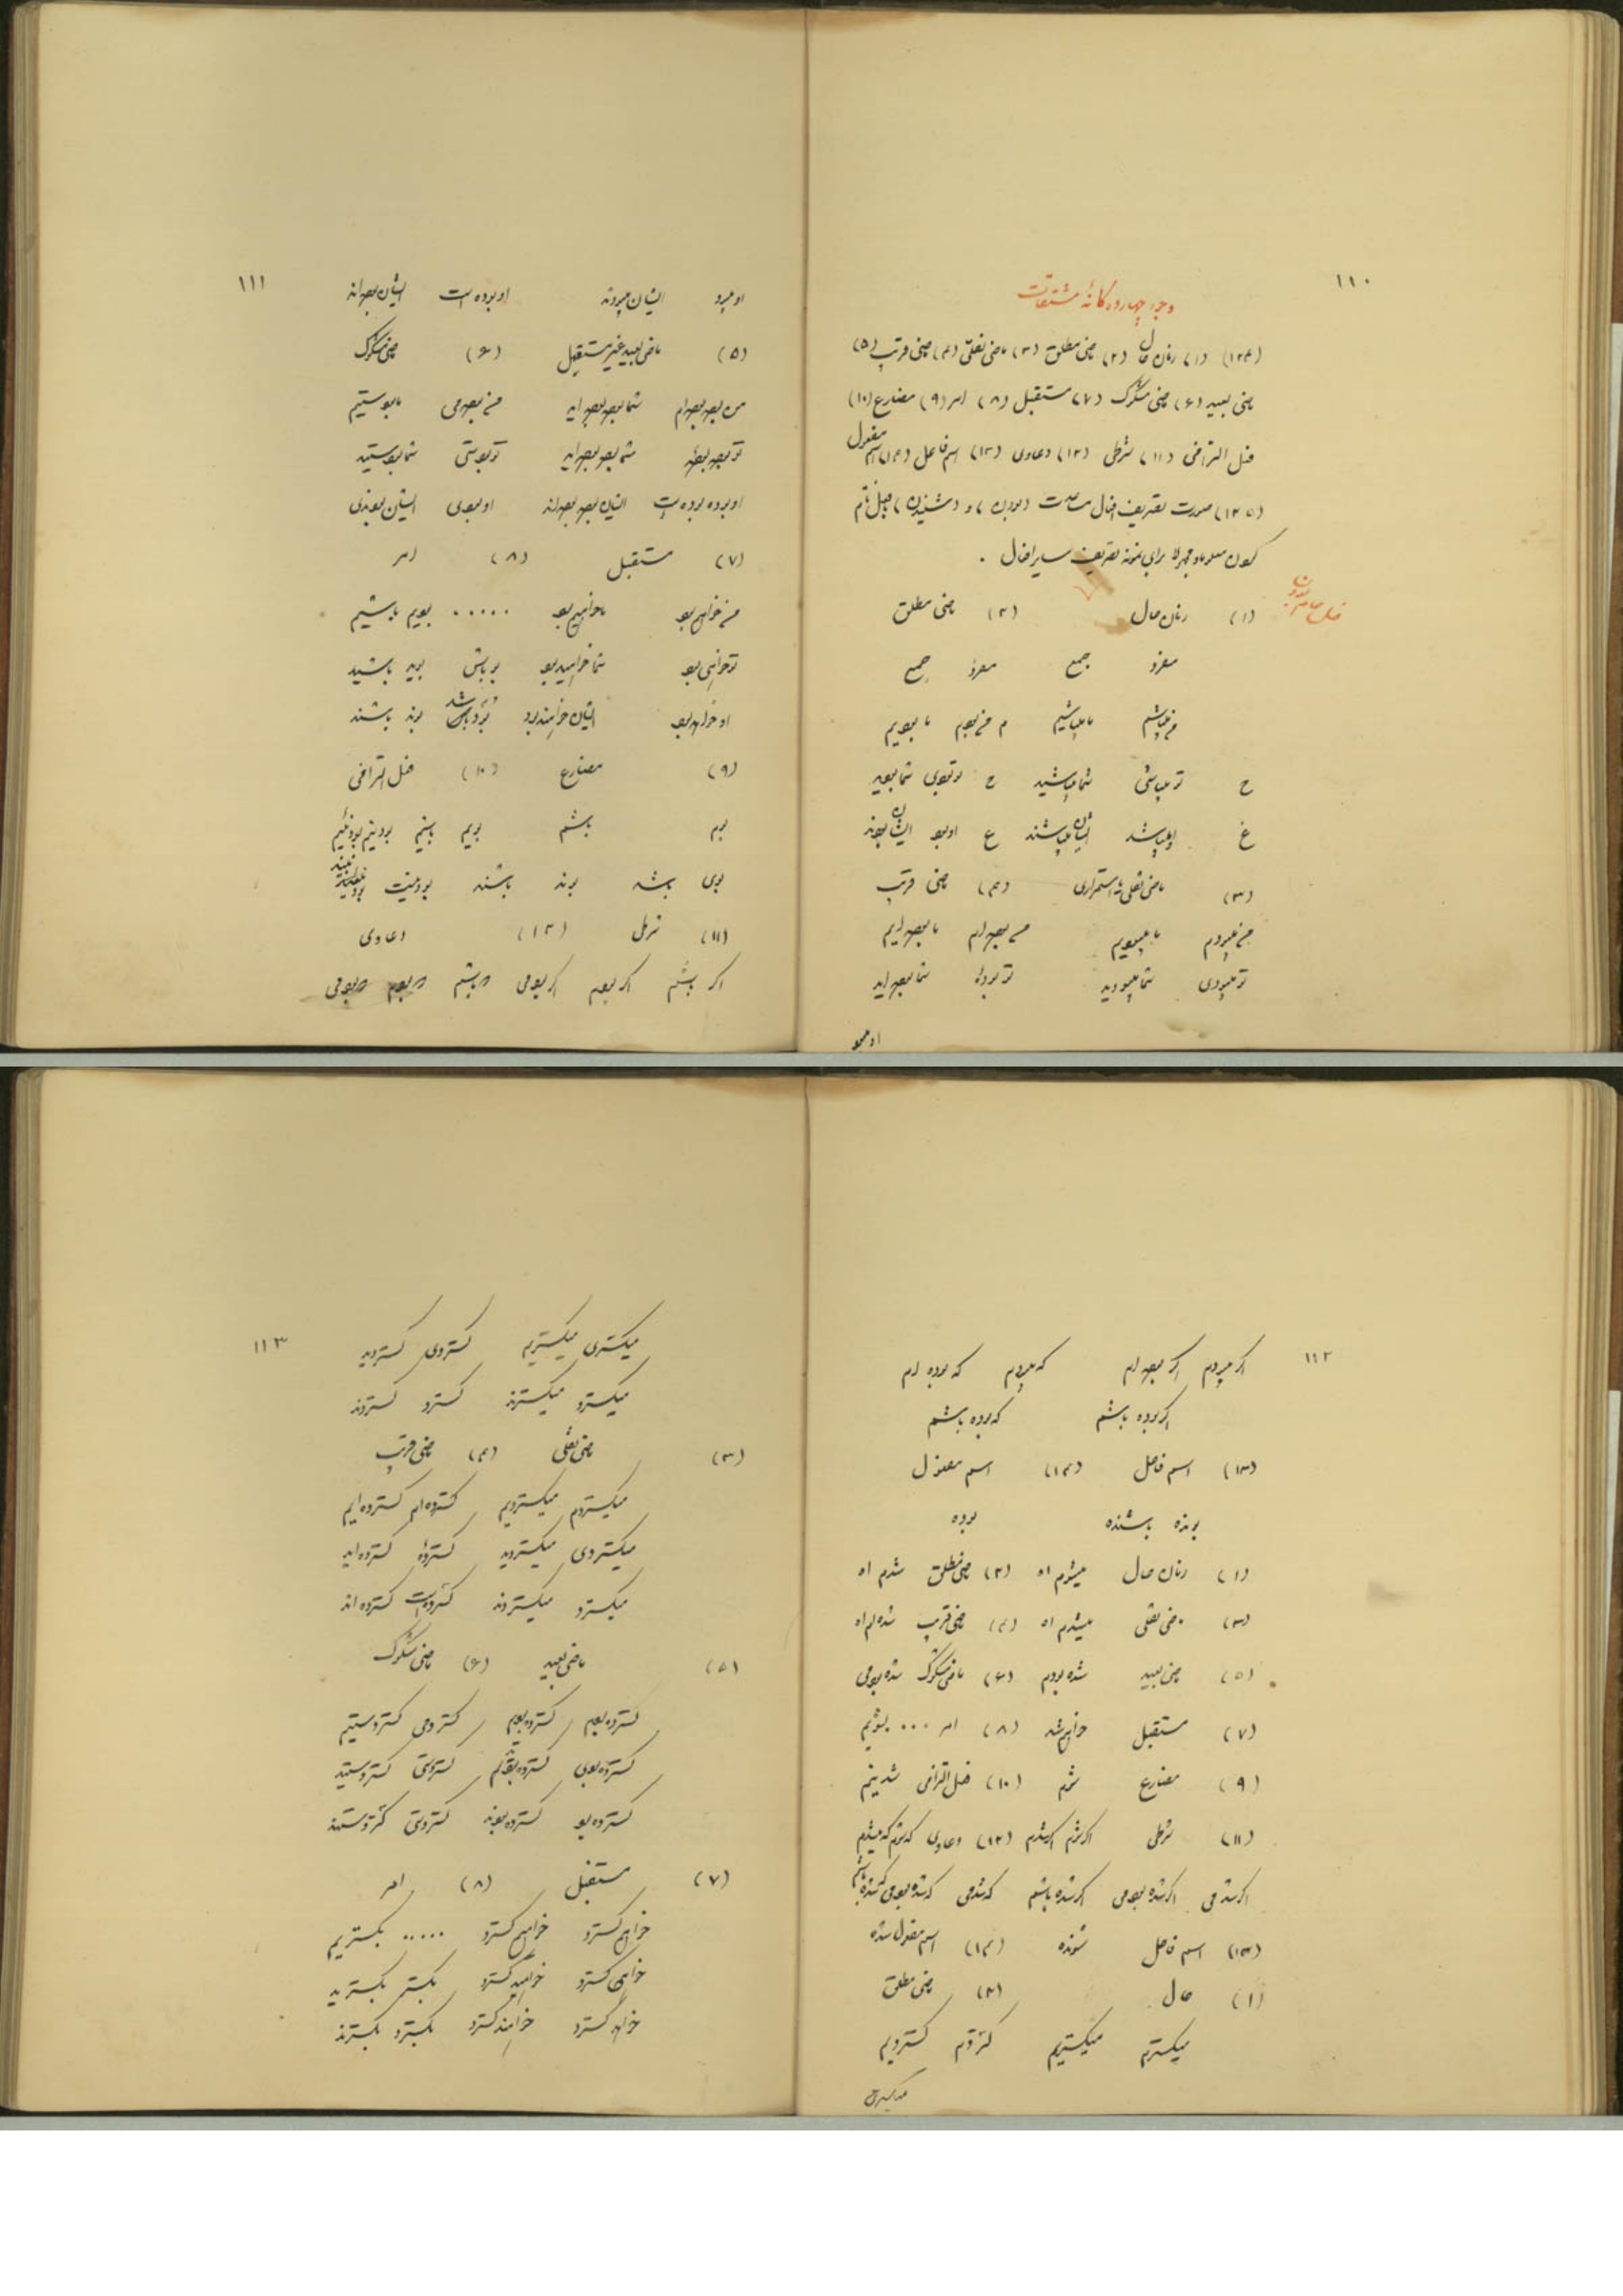 ۱۱۰
وجوه چهارده گانهٔ مشتقات
(۱۲۴) (۱) زمان حال (۲) ماضی مطلق (۳) ماضی نقلی (۴) ماضی قریب (۵)
ماضی بعید (۶) ماضی مشکوک (۷) مستقبل (۸) امر (۹) مضارع (۱۰)
فعل التزامی (۱۱) شرطی (۱۲) دعاوی (۱۳) اسم فاعل (۱۴) اسم مفعول
(۱۲۵) صورت تصریف افعال (بودن) و (شنیدن)
برای نمونه تصریف سایر افعال .
(۱) زمان حال (۲) ماضی مطلق
مفرد جمع مفرد جمع
من میباشم ما میباشیم م من بودم ما بودیم
ح تو میباشی شما میباشید ح تو بودی شما بودید
غ او میباشد ایشان میباشند غ او بود ایشان بودند
(۳) ماضی نقلی یا استمراری (۴) ماضی قریب
من میبودم ما میبودیم من بوده ام ما بوده ایم
تو میبودی شما میبودید تو بودهٔ شما بوده اید
او میبود
۱۱۱
او میبود ایشان میبودند او بوده است ایشان بوده اند
(۵) ماضی بعید غیر مستقبل (۶) ماضی مشکوک
من بوده بوده ام شما بوده بوده اید من بودمی ما بوستیم
تو بوده بودهٔ شما بوده بوده اید تو بوستی شما بوستید
او بوده بوده است ایشان بوده بوده اند او بودی ایشان بودندی
(۷) مستقبل (۸) امر
من خواهم بود ما خواهیم بود ..... بویم باشیم
تو خواهی بود شما خواهید بود بو باش بوید باشید
او خواهد بود ایشان خواهند بود بود باشد بوند باشند
(۹) مضارع (۱۰) فعل التزامی
بوم باشم بویم باشیم
بوی باشد بوند باشند
(۱۱) شرطی (۱۲) دعاوی
اگر باشم اگر بودم اگر بودمی که باشم که بودم که بودمی
۱۱۲
اگر میبودم اگر بوده ام که میبودم که بوده ام
اگر بوده باشم که بوده باشم
(۱۳) اسم فاعل (۱۴) اسم مفعول
بونده باشنده بوده
(۱) زمان حال میشوم اه (۲) ماضی مطلق شدم اه
(۳) ماضی نقلی میشدم اه (۴) ماضی قریب شده ام اه
(۵) ماضی بعید شده بودم (۶) ماضی مشکوک شده بودمی
(۷) مستقبل خواهم شد (۸) امر ... بشویم
(۹) مضارع شوم (۱۰) فعل التزامی
(۱۱) شرطی اگر شوم اگر شدم (۱۲) دعاوی که شوم که میشدم
اگر شدمی اگر شده بودمی اگر شده باشم که شدمی که شده بودمی که شده باشم
(۱۳) اسم فاعل شونده (۱۴) اسم مفعول شده
(۱) حال (۲) ماضی مطلق
میگسترم میگستریم گستردم گستردیم
میگستری
۱۱۳
میگستری میگسترید گستردی گستردید
میگسترد میگسترند گسترد گستردند
(۳) ماضی نقلی (۴) ماضی قریب
میگستردم میگستردیم گسترده ام گسترده ایم
میگستردی میگستردید گستردهٔ گسترده اید
میگسترد میگستردند گسترده است گسترده اند
(۵) ماضی بعید (۶) ماضی مشکوک
گسترده بودم گسترده بودیم گستردمی گسترستیم
گسترده بودی گسترستی گسترستید
گسترده بود گسترده بودند گستردی گسترستند
(۷) مستقبل (۸) امر
خواهم گسترد خواهیم گسترد ..... بگستریم
خواهی گسترد خواهید گسترد بگستر بگسترید
خواهد گسترد خواهند گسترد بگسترد بگسترند